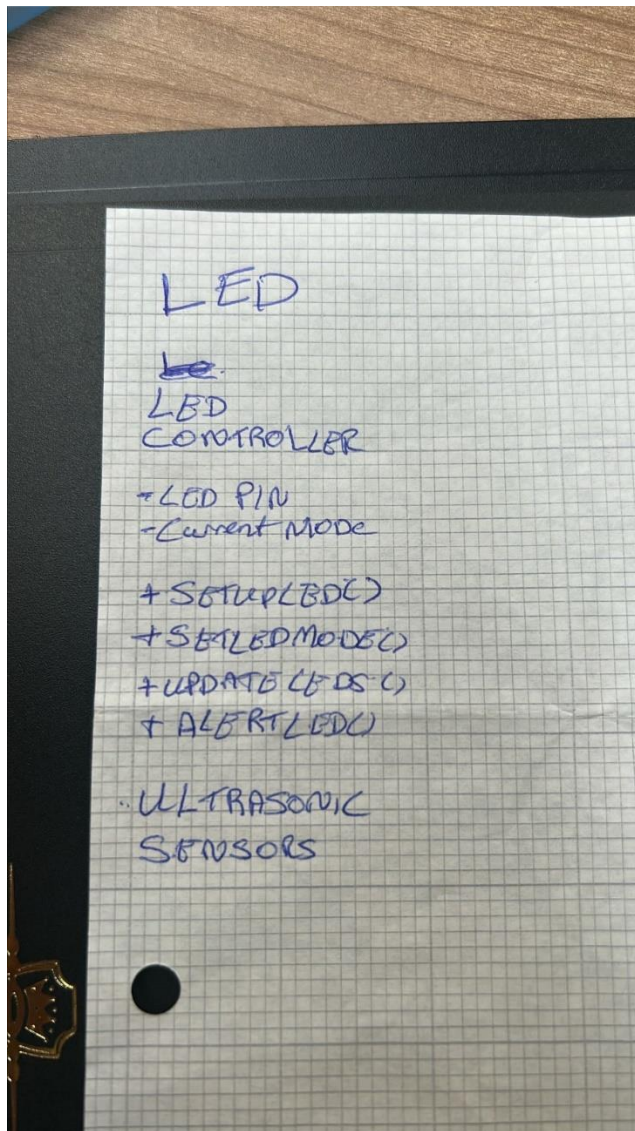 LED
LED
CONTROLLER
-LED PIN
-Current MODE
+SETUPLED()
+SETLEDMODE()
+UPDATE LEDS()
+ ALERTLED()
ULTRASONIC
SENSORS